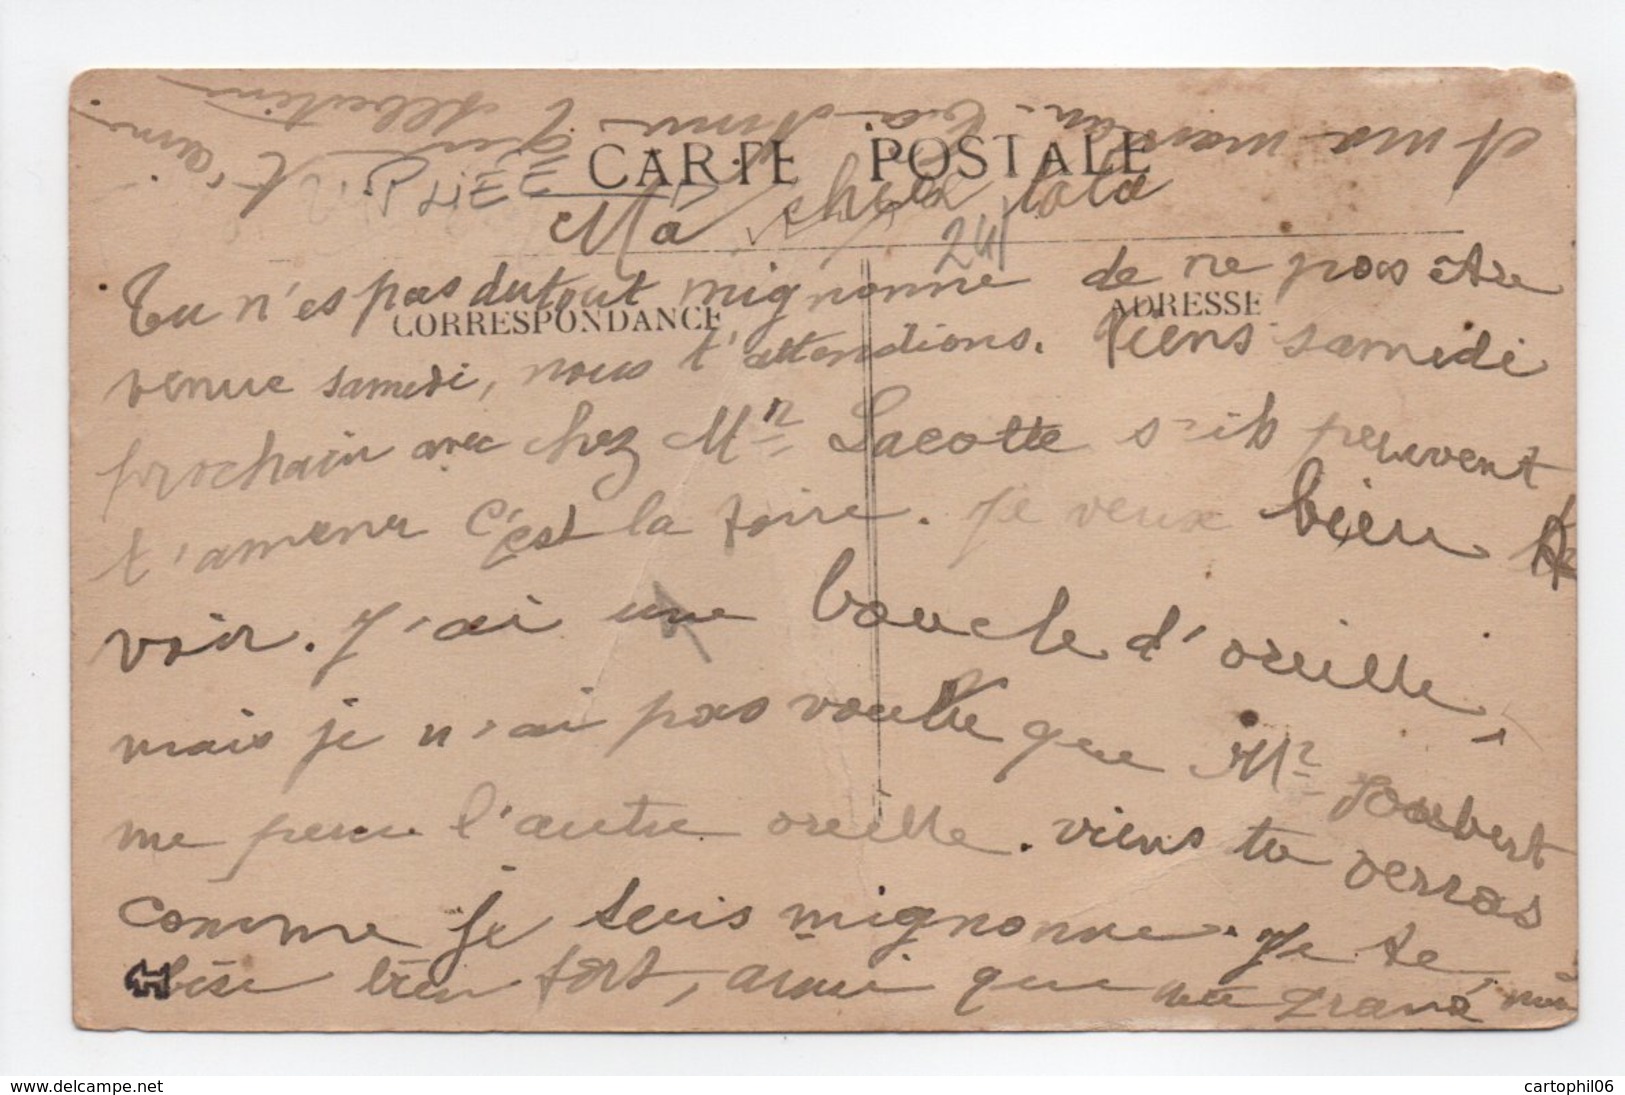 CARTE POSTALE
Ma chère tata
241
CORRESPONDANCE
ADRESSE
Tu n'es pas du tout mignonne de ne pas être
venue samedi, nous t'attendions. Viens samedi
prochain avec chez Mr Lacotte s'ils peuvent
t'amener c'est la foire. Je veux bien te
voir. J'ai une boucle d'oreille,
mais je n'ai pas voulu que Mr Joubert
me perce l'autre oreille. viens tu verras
comme je suis mignonne. Je te
bise bien fort, ainsi que ma grand
A ma marraine. Ta
qui t'aime Albertine
www.delcampe.net
cartophil06